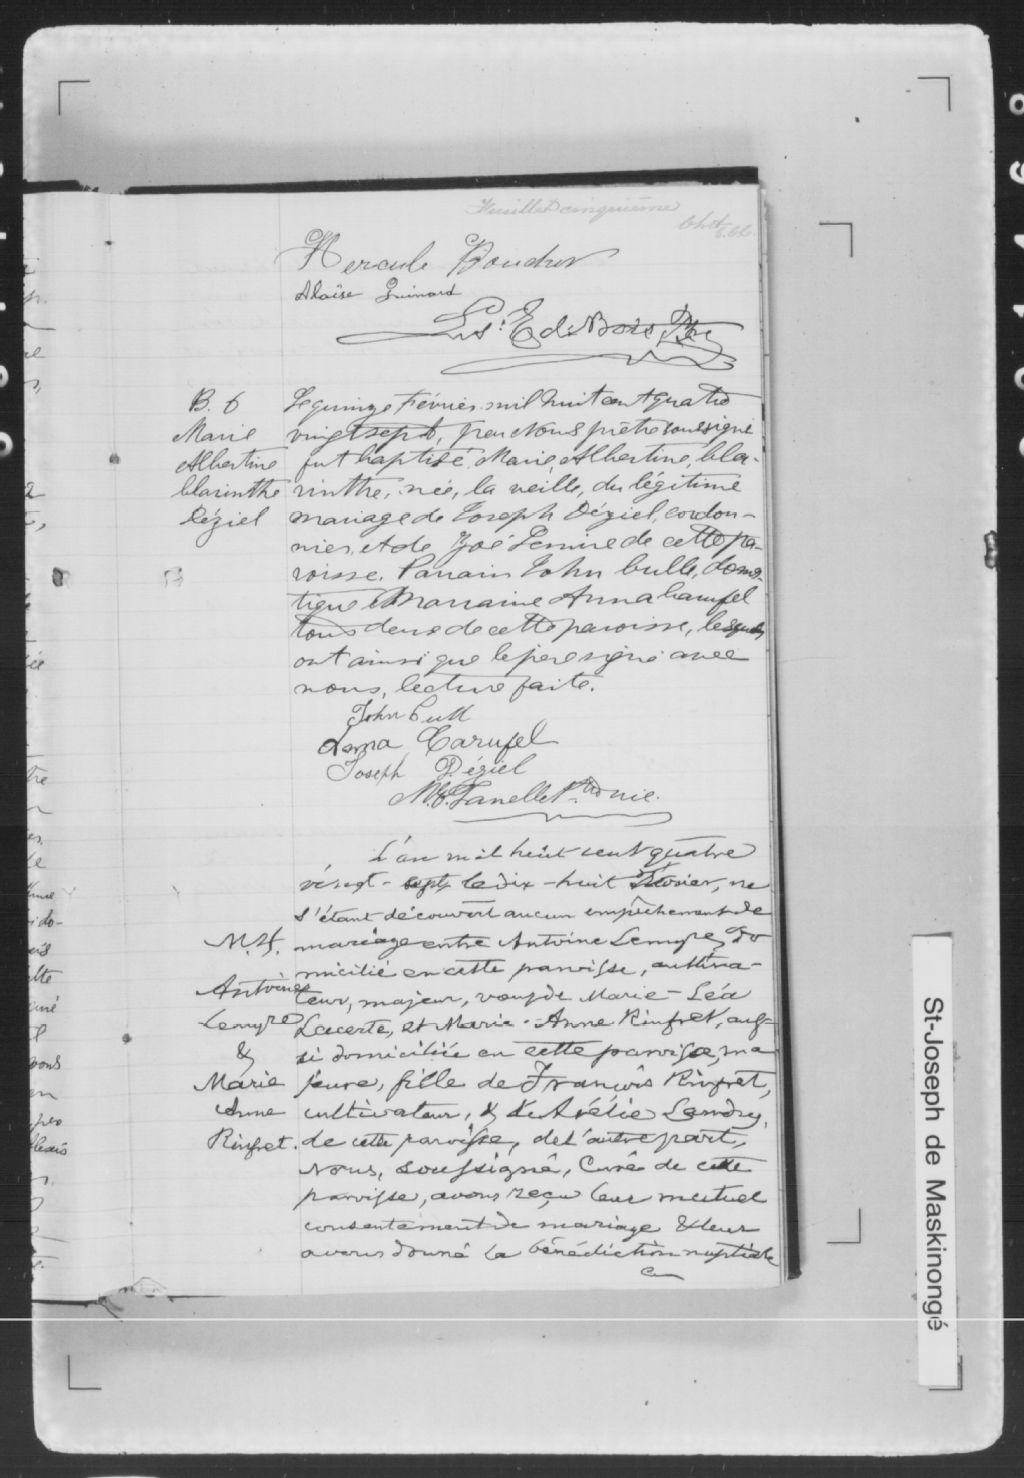 Feuillet cinquième
Hercule Boucher
Aloïse Guinard
Ls. Ed. Bois Ptre
B. 6
Marie
Albertine
Clarinthe
Déziel
Le quinze Février mil huit cent quatre
vingt sept, par Nous prêtre soussigné
fut baptisé Marie, Albertine, Cla-
rinthe, née, la veille, du légitime
mariage de Joseph Déziel, cordon-
nier, et de Zoé Lemire de cette pa-
roisse. Parrain John bull, domes-
tique Marraine Anna Carufel
tous deux de cette paroisse, lesquels
ont ainsi que le père signé avec
nous, lecture faite.
John bull
Anna Carufel
Joseph Déziel
Ptre vic.
L'an mil huit cent quatre
vingt-sept, le dix-huit Février, ne
s'étant découvert aucun empêchement de
mariage entre Antoine Lemyre, do
micilié en cette paroisse, cultiva-
teur, majeur, veuf de Marie-Léa
Lacerte, et Marie-Anne Rinfret, aus-
si domiciliée en cette paroisse, ma
jeure, fille de François Rinfret,
cultivateur, & de Landry,
de cette paroisse, de l'autre part,
Nous, soussigné, Curé de cette
paroisse, avons reçu leur mutuel
consentement de mariage & leur
avons donné la bénédiction nuptiale
Antoine
Lemyre
&
Marie
Anne
Rinfret.
St-Joseph de Maskinongé